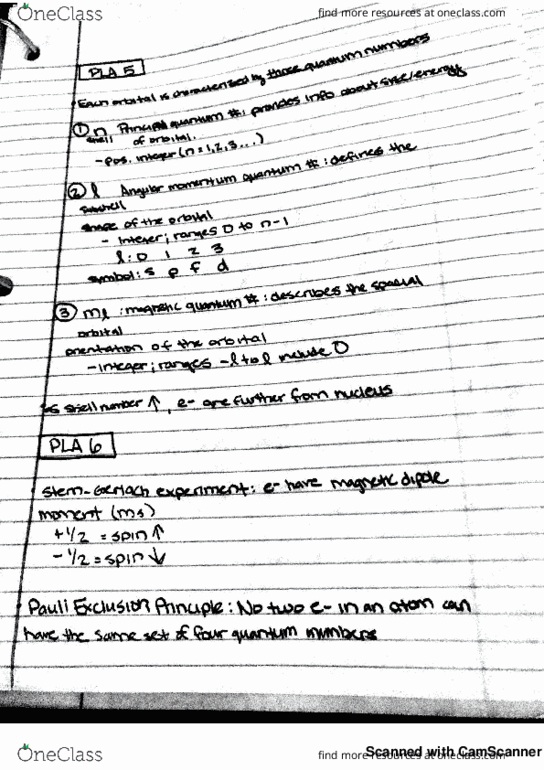 OneClass find more resources at oneclass.com
PLA 5
Each orbital is characterized by three quantum numbers
① n Principal quantum #: provides info about size/energy
shell of orbital.
- pos. integer (n=1,2,3...)
② l Angular momentum quantum #: defines the
subshell
shape of the orbital
- integer; ranges 0 to n-1
l: 0 1 2 3
symbol: s p f d
③ ml : magnetic quantum #: describes the spacial
orbital
orientation of the orbital
- integer; ranges -l to l include 0
as shell number ↑, e- are further from nucleus
PLA 6
Stern-Gerlach experiment: e- have magnetic dipole
moment (ms)
+1/2 = spin ↑
-1/2 = spin ↓
Pauli Exclusion Principle: No two e- in an atom can
have the same set of four quantum numbers
Scanned with CamScanner
OneClass find more resources at oneclass.com